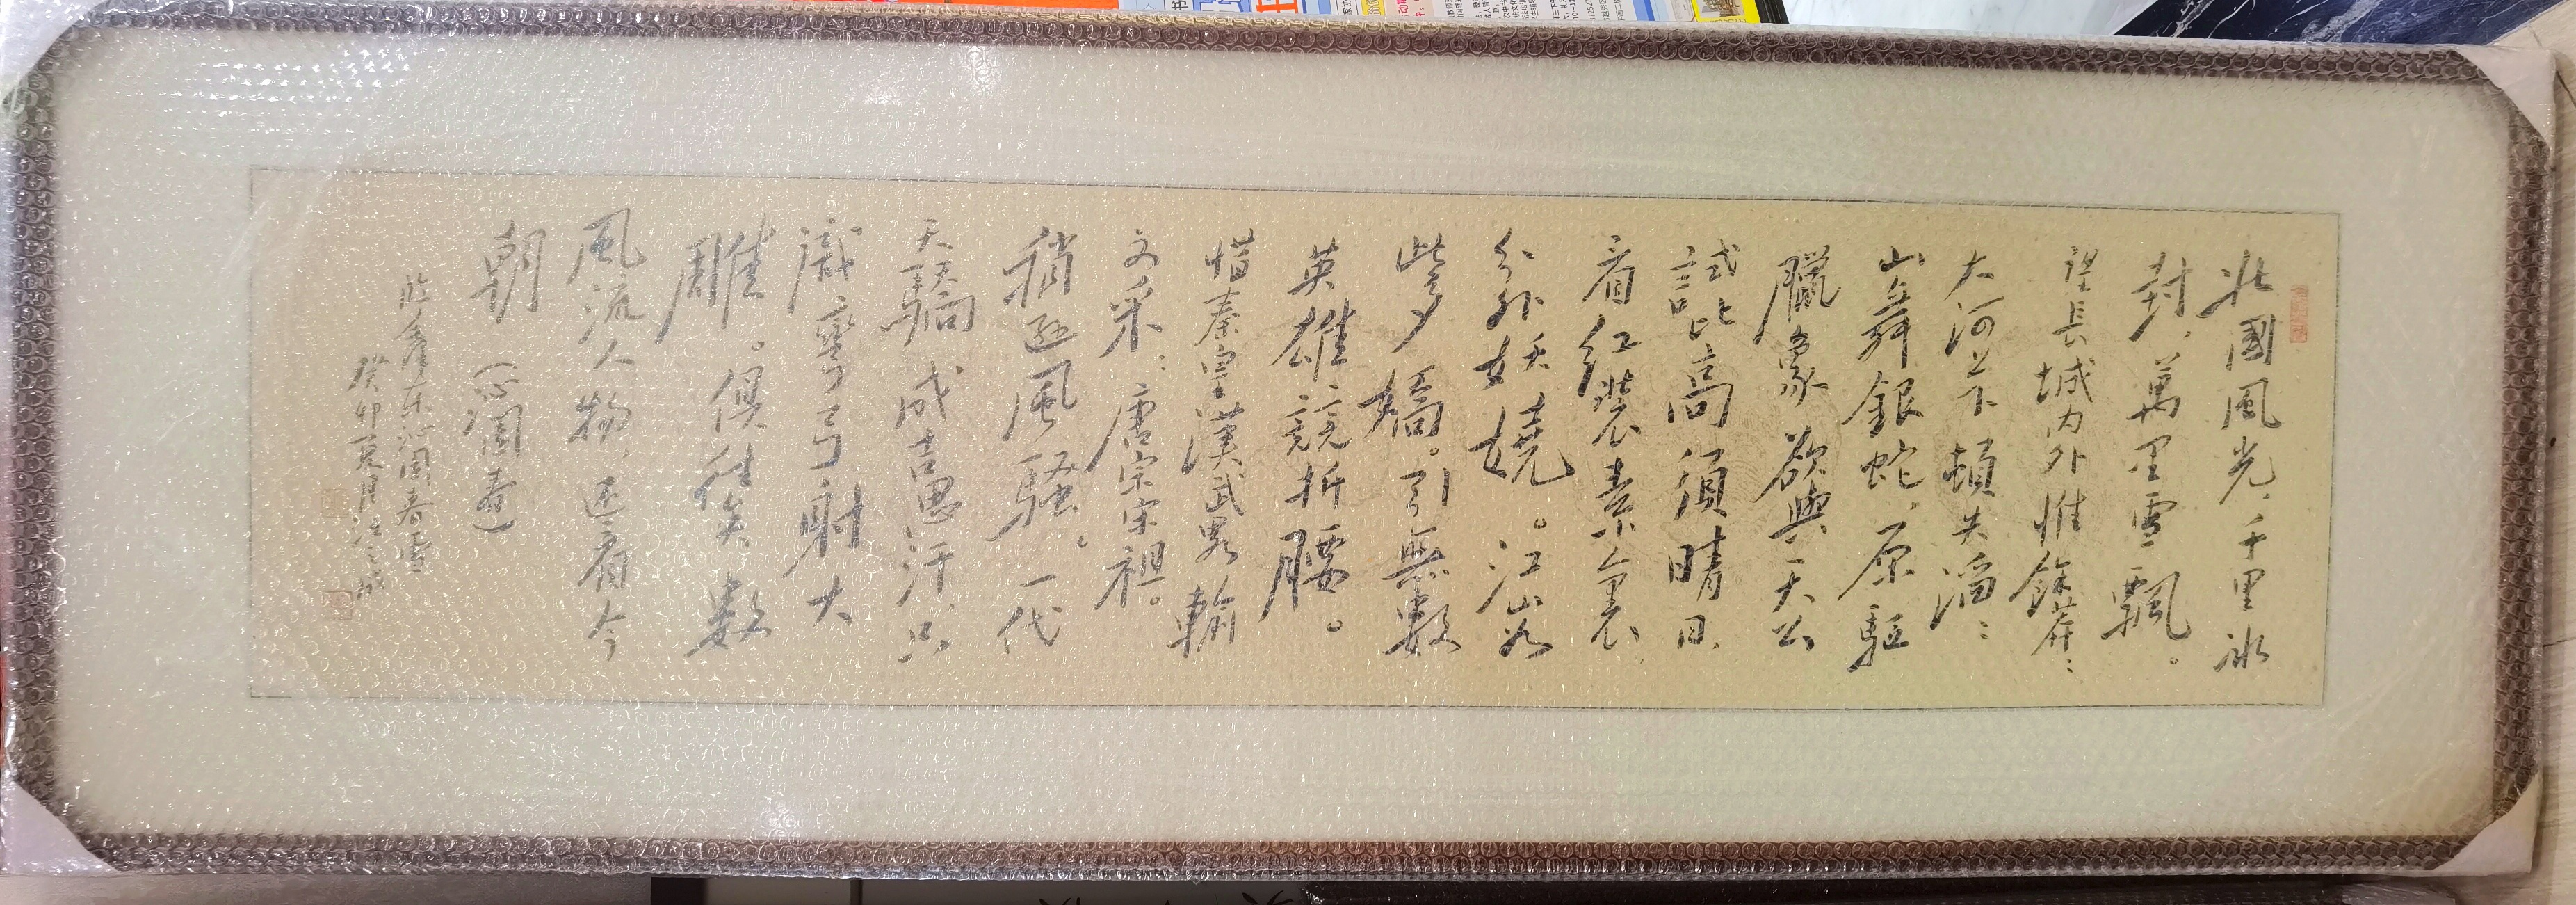 北國風光，千里冰
封，萬里雪飄。
望長城内外惟餘莽：
大河上下頓失滔：
山舞銀蛇，原駆
臘象欲與天公
試比高須晴日，
看红裝素裹，
分外妖嬈。江山如
此多嬌。引無數
英雄競折腰。
惜秦皇漢武畧輸
文采：唐宗宋祖。
稍遜風騷。一代
天驕成吉思汗，只
識彎弓射大
雕。俱往矣數
風流人物，还看今
朝（沁園春）
臨泽东沁园春雪
癸卯夏月江